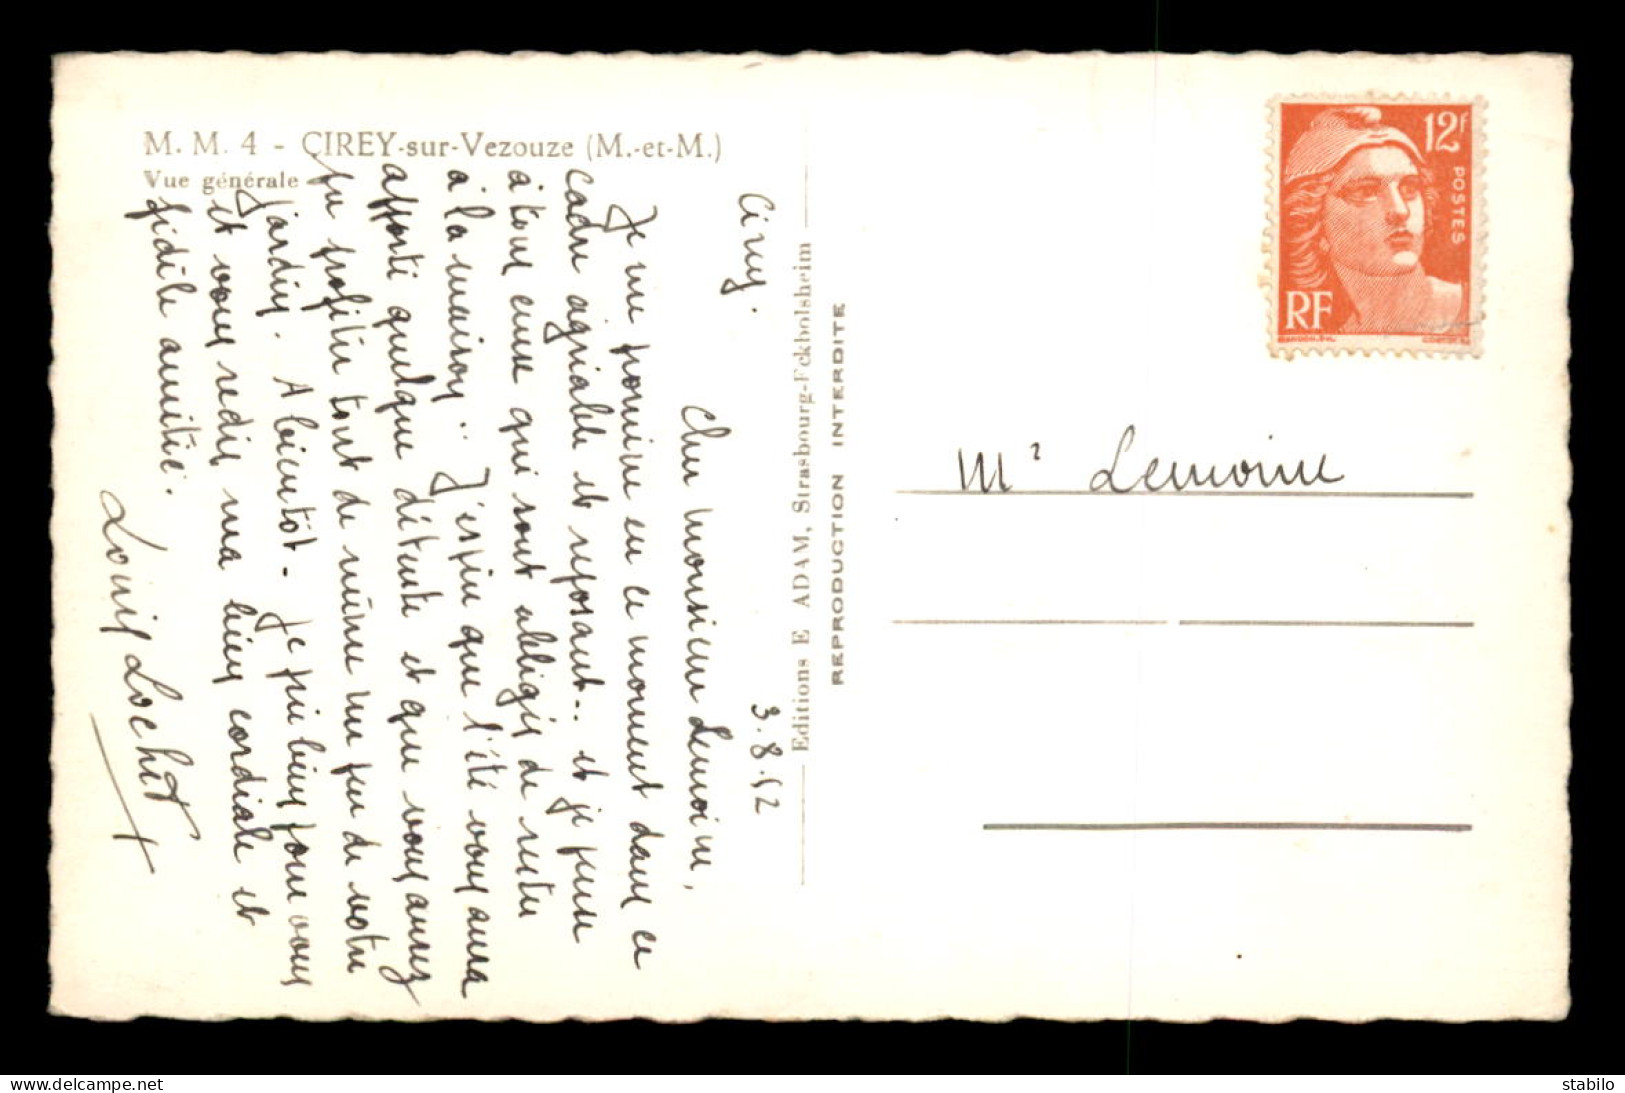 M. M. 4 - CIREY-sur-Vezouze (M.-et-M.)
Vue générale
Cirey. 3.8.52
Cher Monsieur Lemoine,
Je me promène en ce moment dans ce
cadre agréable et reposant... et je pense
à tous ceux qui sont obligés de rester
à la maison... J'espère que l'été vous aura
apporté quelque détente et que vous aurez
pu profiter tout de même un peu de votre
jardin. A bientôt. Je prie bien pour vous
et vous redis ma bien cordiale et
fidèle amitié.
Louis Lochet
Editions E ADAM, Strasbourg-Eckbolsheim
REPRODUCTION INTERDITE
12f
POSTES
RF
Mr Lemoine
delcampe.net
stabilo